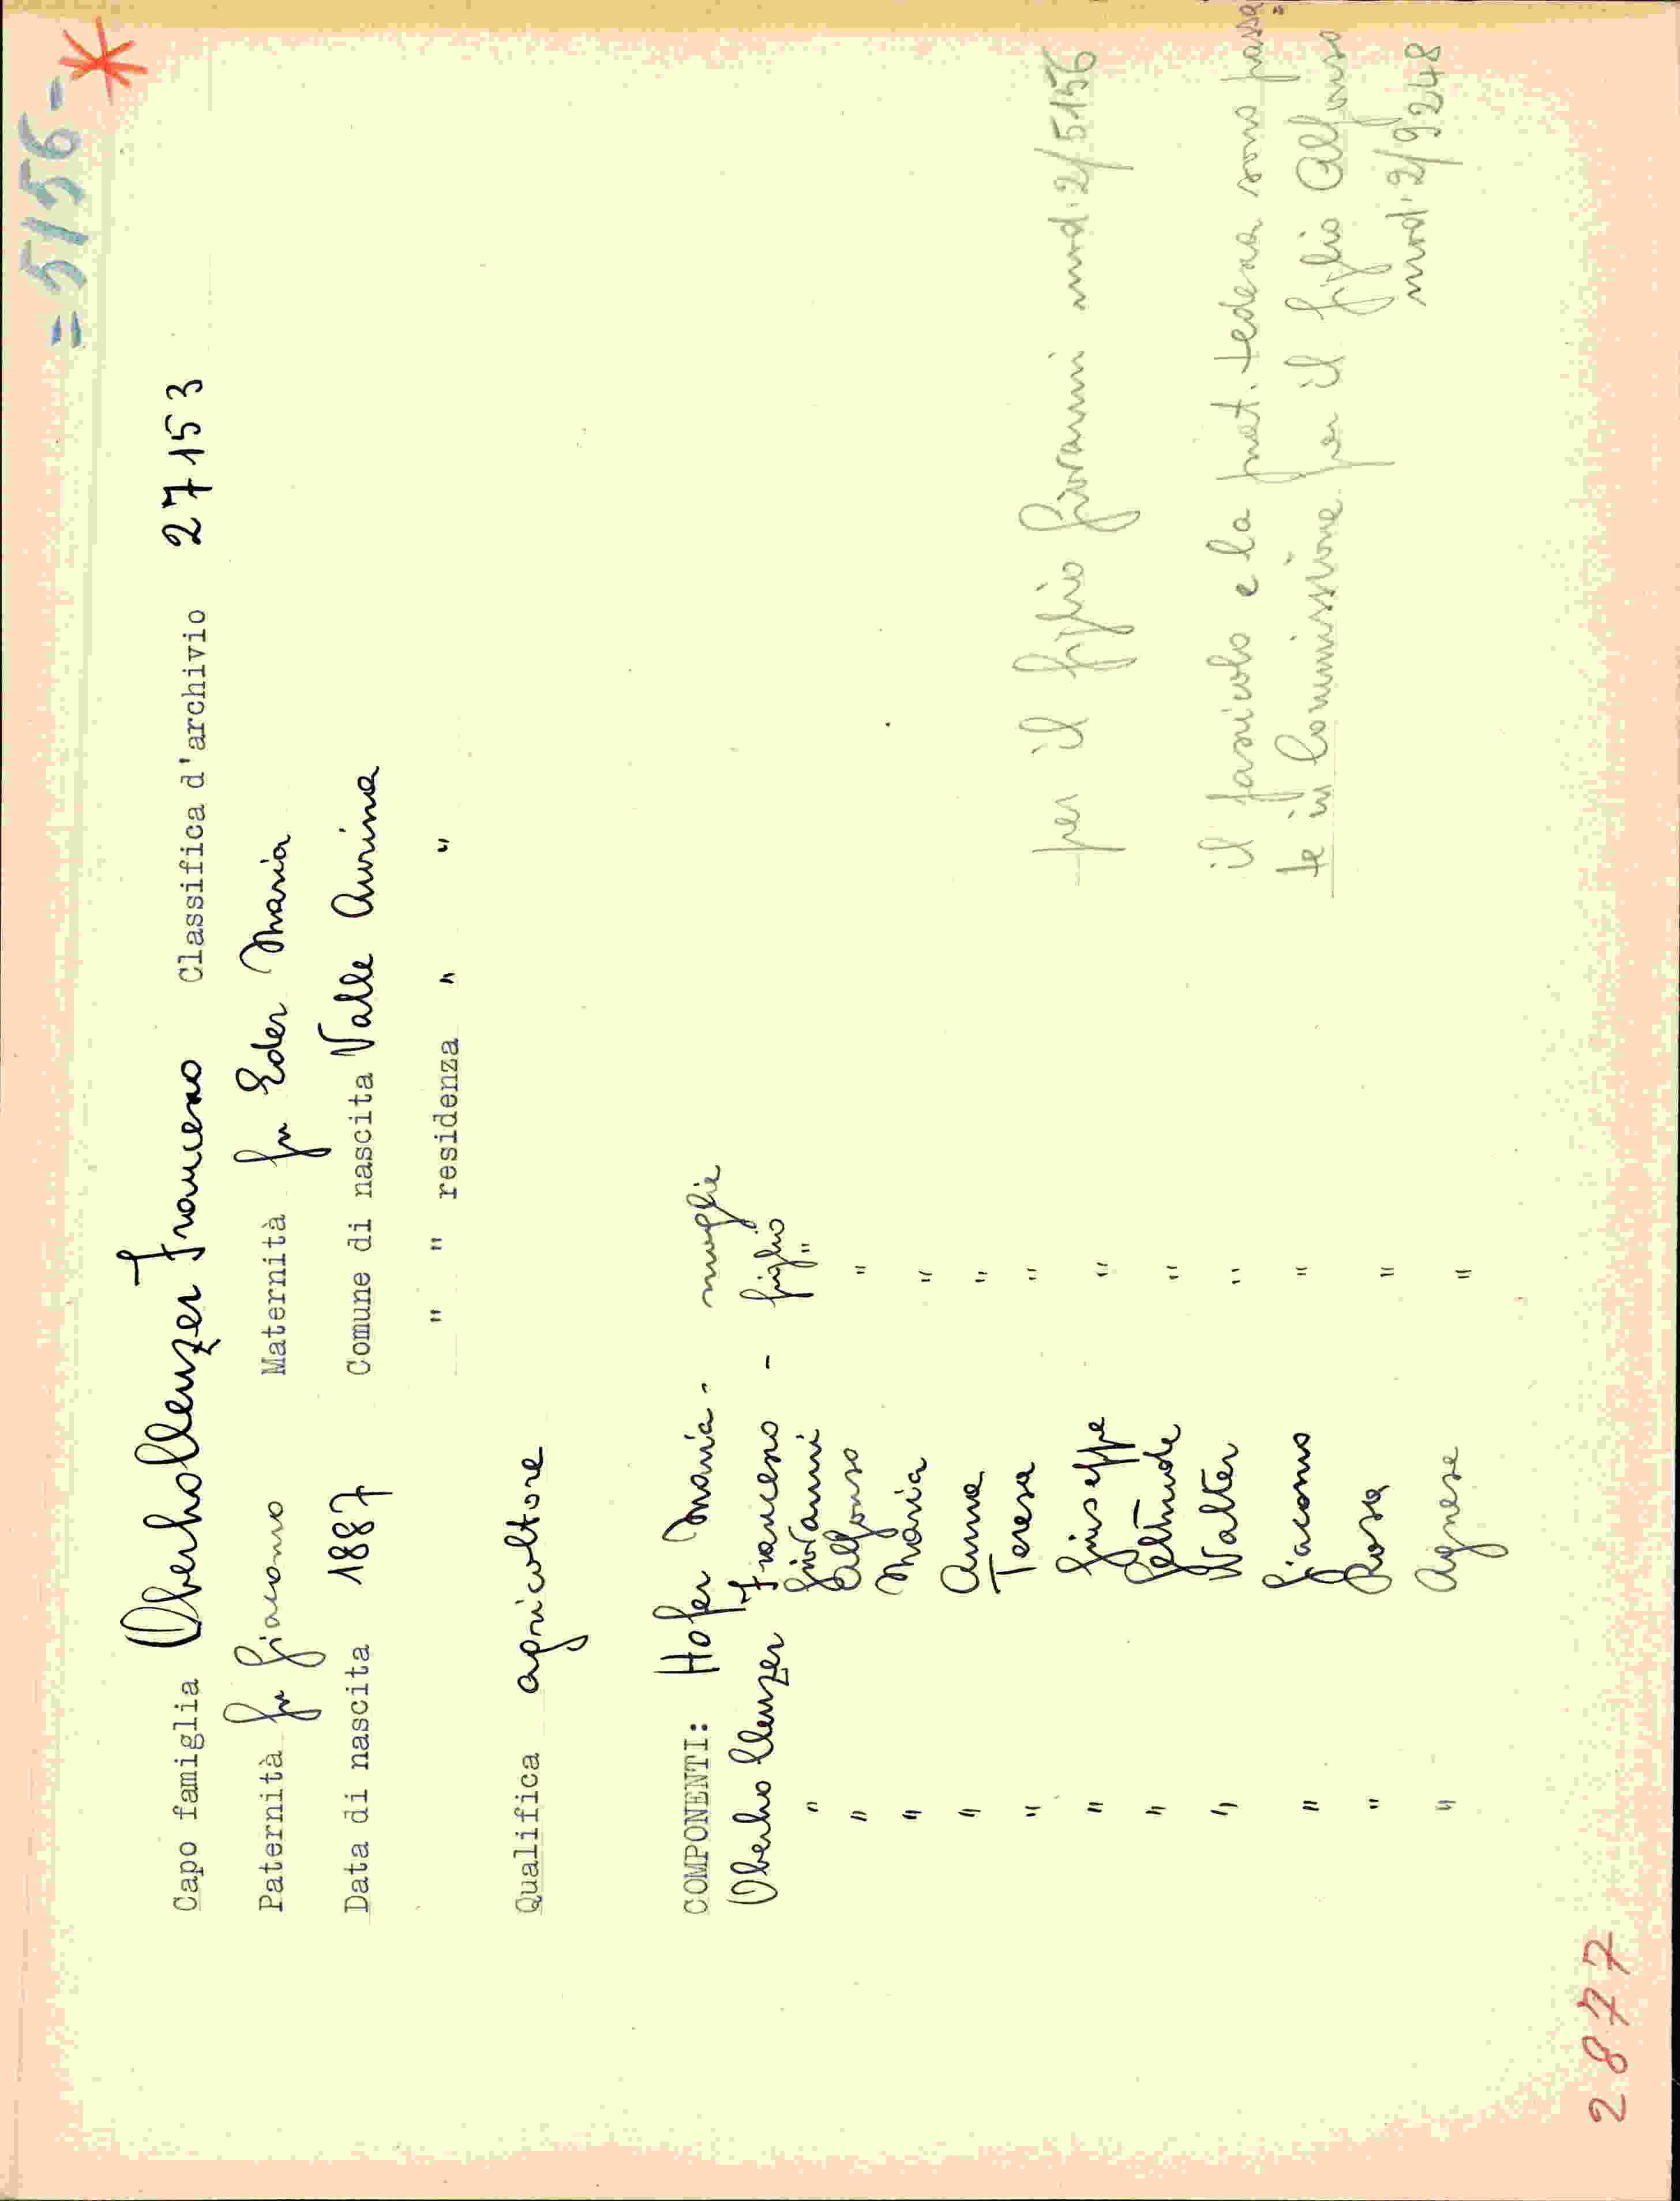 =5156-
Capo famiglia Oberhollenzer Francesco Classifica d'archivio 27153
Paternità fu Giacomo Maternità fu Eder Maria
Data di nascita 1887 Comune di nascita Valle Aurina
" " residenza " "
Qualifica agricoltore
COMPONENTI: Hofer Maria - moglie
Oberhollenzer Francesco - figlio
" Giovanni "
" Alfonso "
" Maria "
" Anna "
" Teresa "
" Giuseppe "
" Geltrude "
" Walter "
" Giacomo "
" Rosa "
" Agnese "
per il figlio Giovanni mod. 2/5156
il fascicolo e la prat. tedesca sono passa=
te in Commissione per il figlio Alfonso
mod. 2/9248
2877